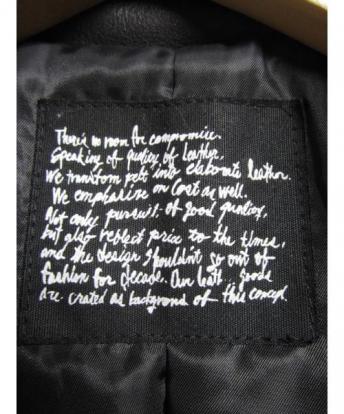 There is no room for compromise.
Speaking of quality of leather,
We transform pelt into elaborate leather.
We emphasize on cost as well.
Not only pursuit of good quality,
but also reflect price to the times,
and the design shouldn't go out of
fashion for decade. Our leath... goods
are crated as background of this concept.